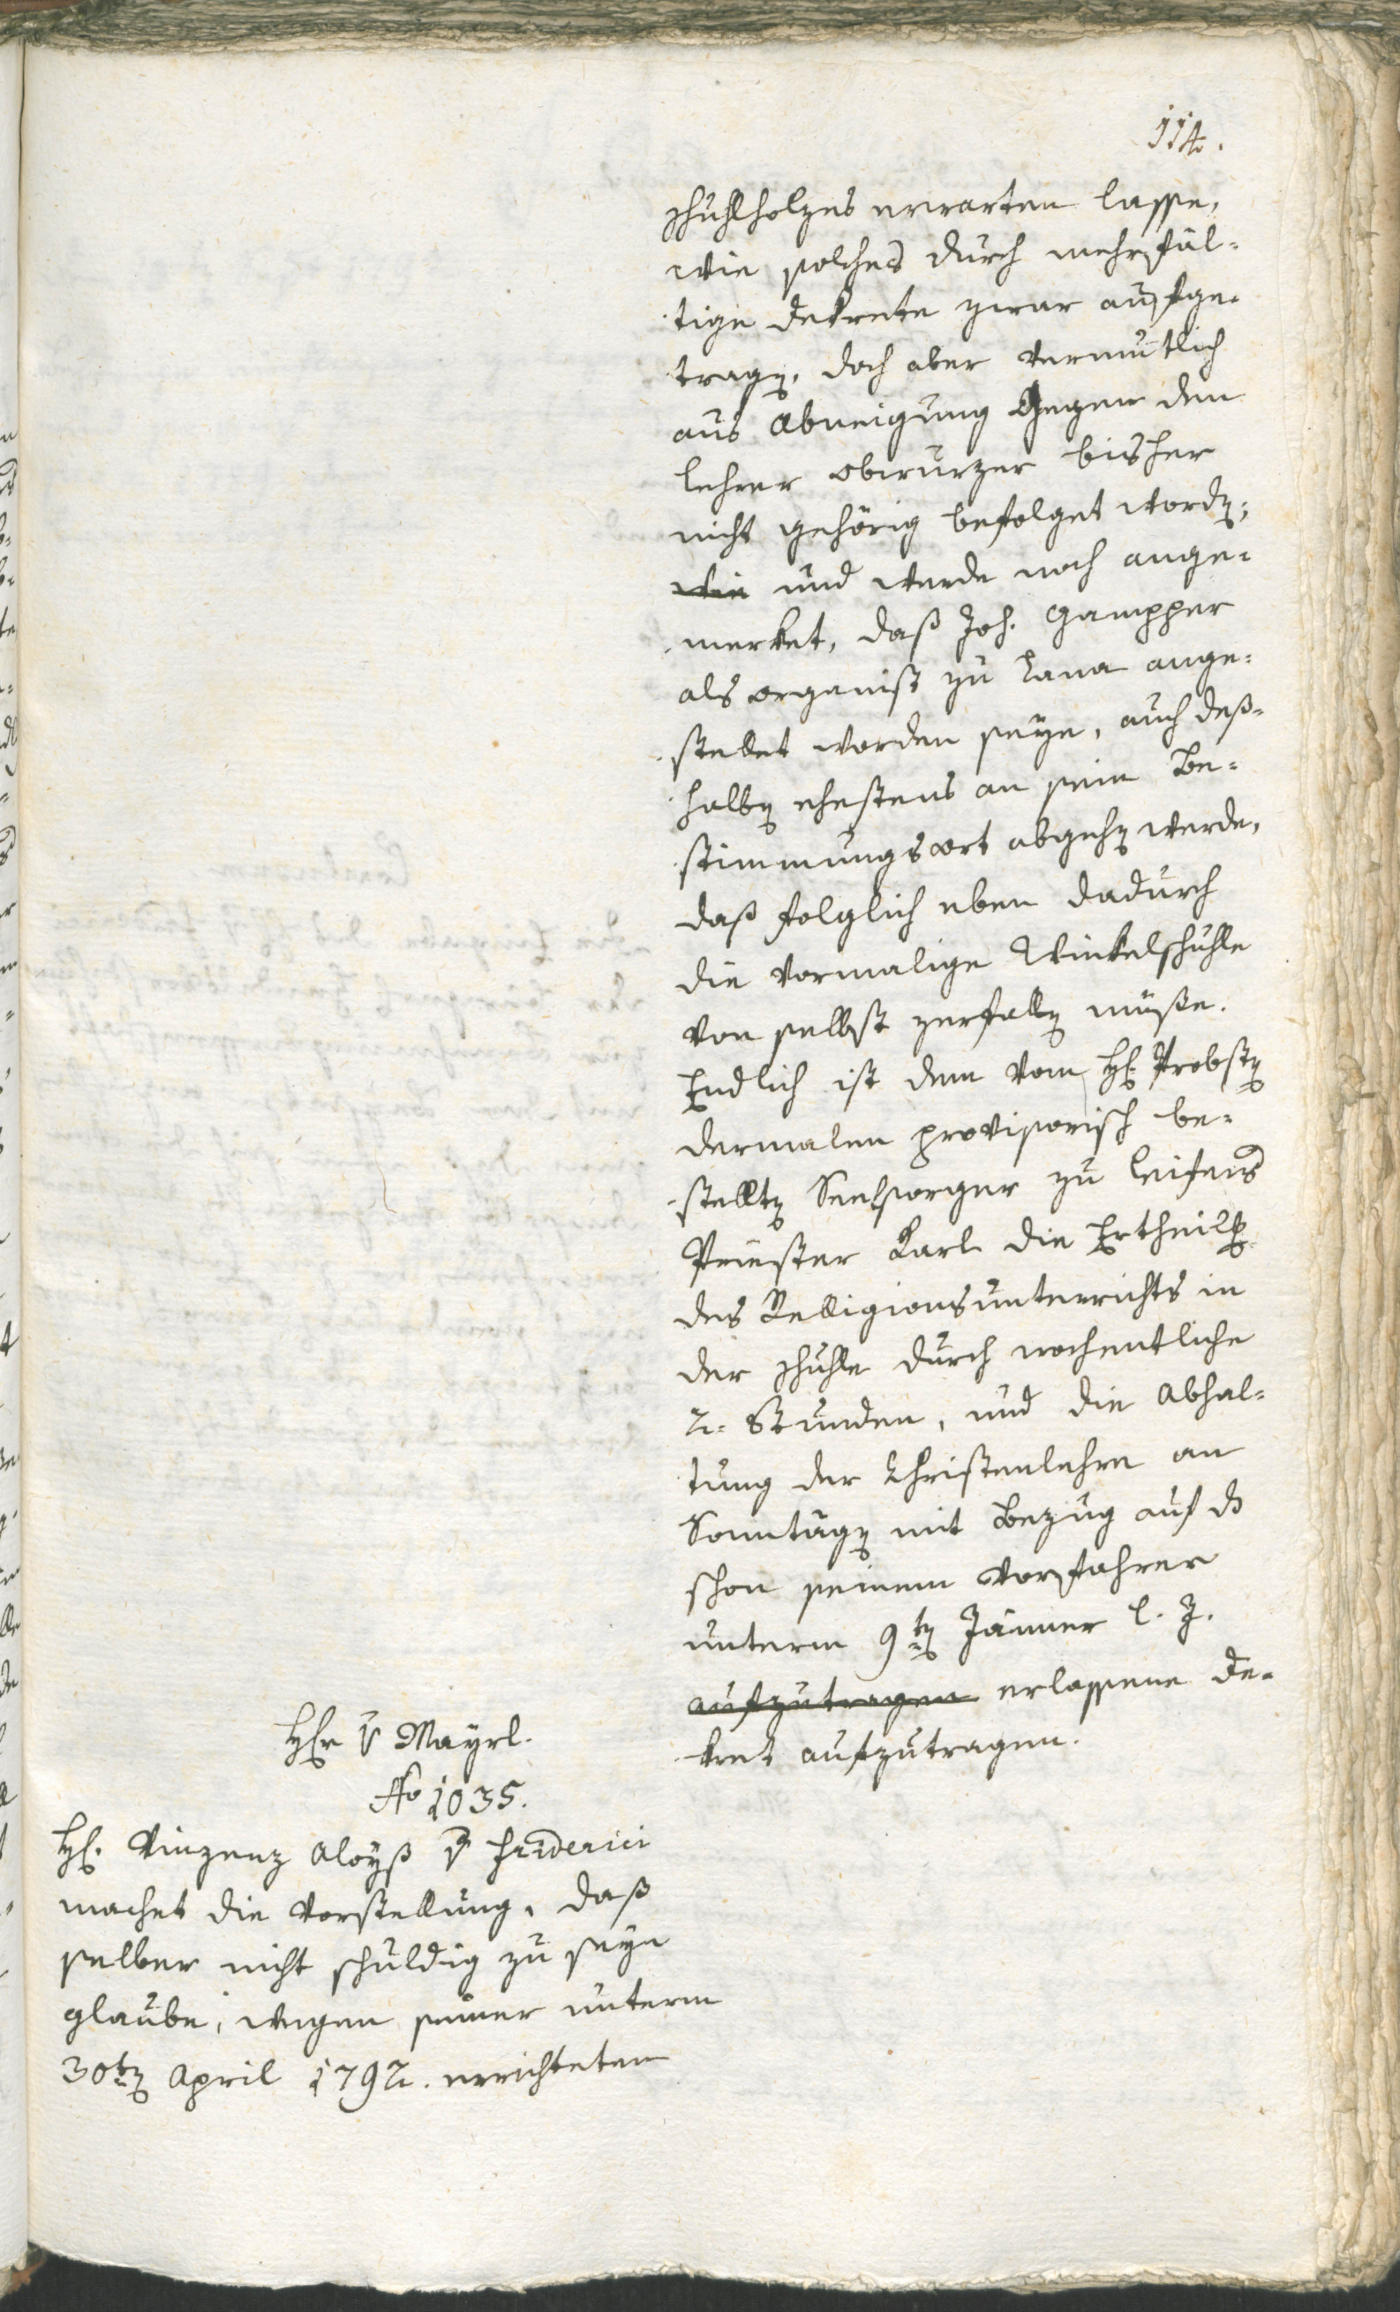 114.
schuhlholzes erwarten lasse,
wie solches durch mehrfäl-
tige Dekrete zwar aufge-
tragen, doch aber vermutlich
aus Abneigung Gegen den
Lehrer Obwurzer bisher
nicht gehörig befolget worden;
wie und werde noch ange-
merket, daß Joh. Gampper
als Organist zu Lana ange-
stellet worden seye, auch deß-
halben ehestens an sein Be-
stimmungsort abgehen werde,
daß folglich eben dadurch
die vormalige Winkelschuhle
von selbst zerfallen müße.
Endlich ist dem vom H. Probsten
dermalen provisorisch be-
stellten Seelsorger zu Leifers
Priester Karl die Ertheilung
des Religionsunterrichts in
der schuhle durch wochentliche
2. Stunden, und die Abhal-
tung der Christenlehre an
Sonntägen mit Bezug auf das
schon seinem Vorfahrer
unterm 9ten Jänner l. J.
aufzutragen erlassene De-
kret aufzutragen.
Hr. v Mayrl.
No 1035.
H. Vinzenz Aloyß v Friderici
machet die Vorstellung, daß
selber nicht schuldig zu seyn
glaube, wegen seiner unterm
30ten April 1792. errichteten